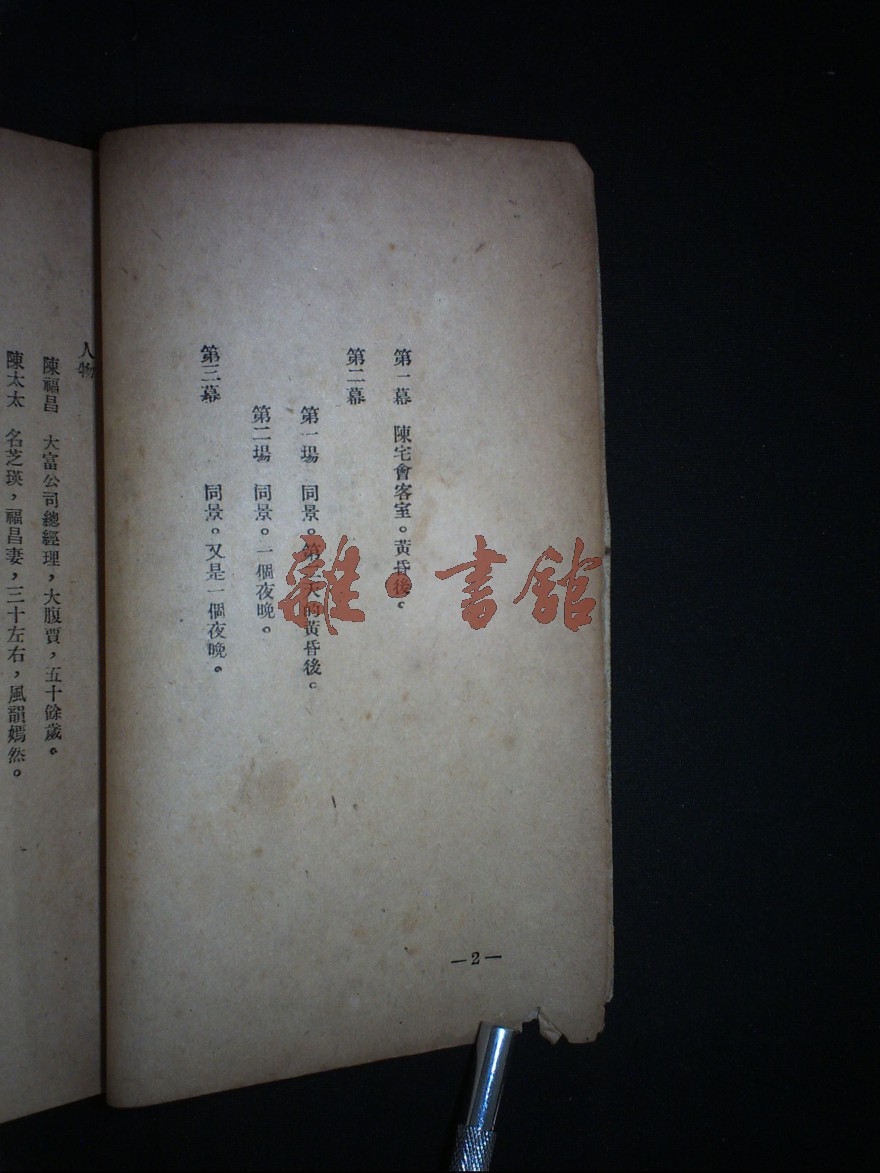 第一幕　陳宅會客室。黃昏後。
第二幕
第一場　同景。第二天的黃昏後。
第二場　同景。一個夜晚。
第三幕　同景。又是一個夜晚。
—2—
人物
陳福昌　大富公司總經理，大腹賈，五十餘歲。
陳太太　名芝瑛，福昌妻，三十左右，風韻嫣然。
雜·書館